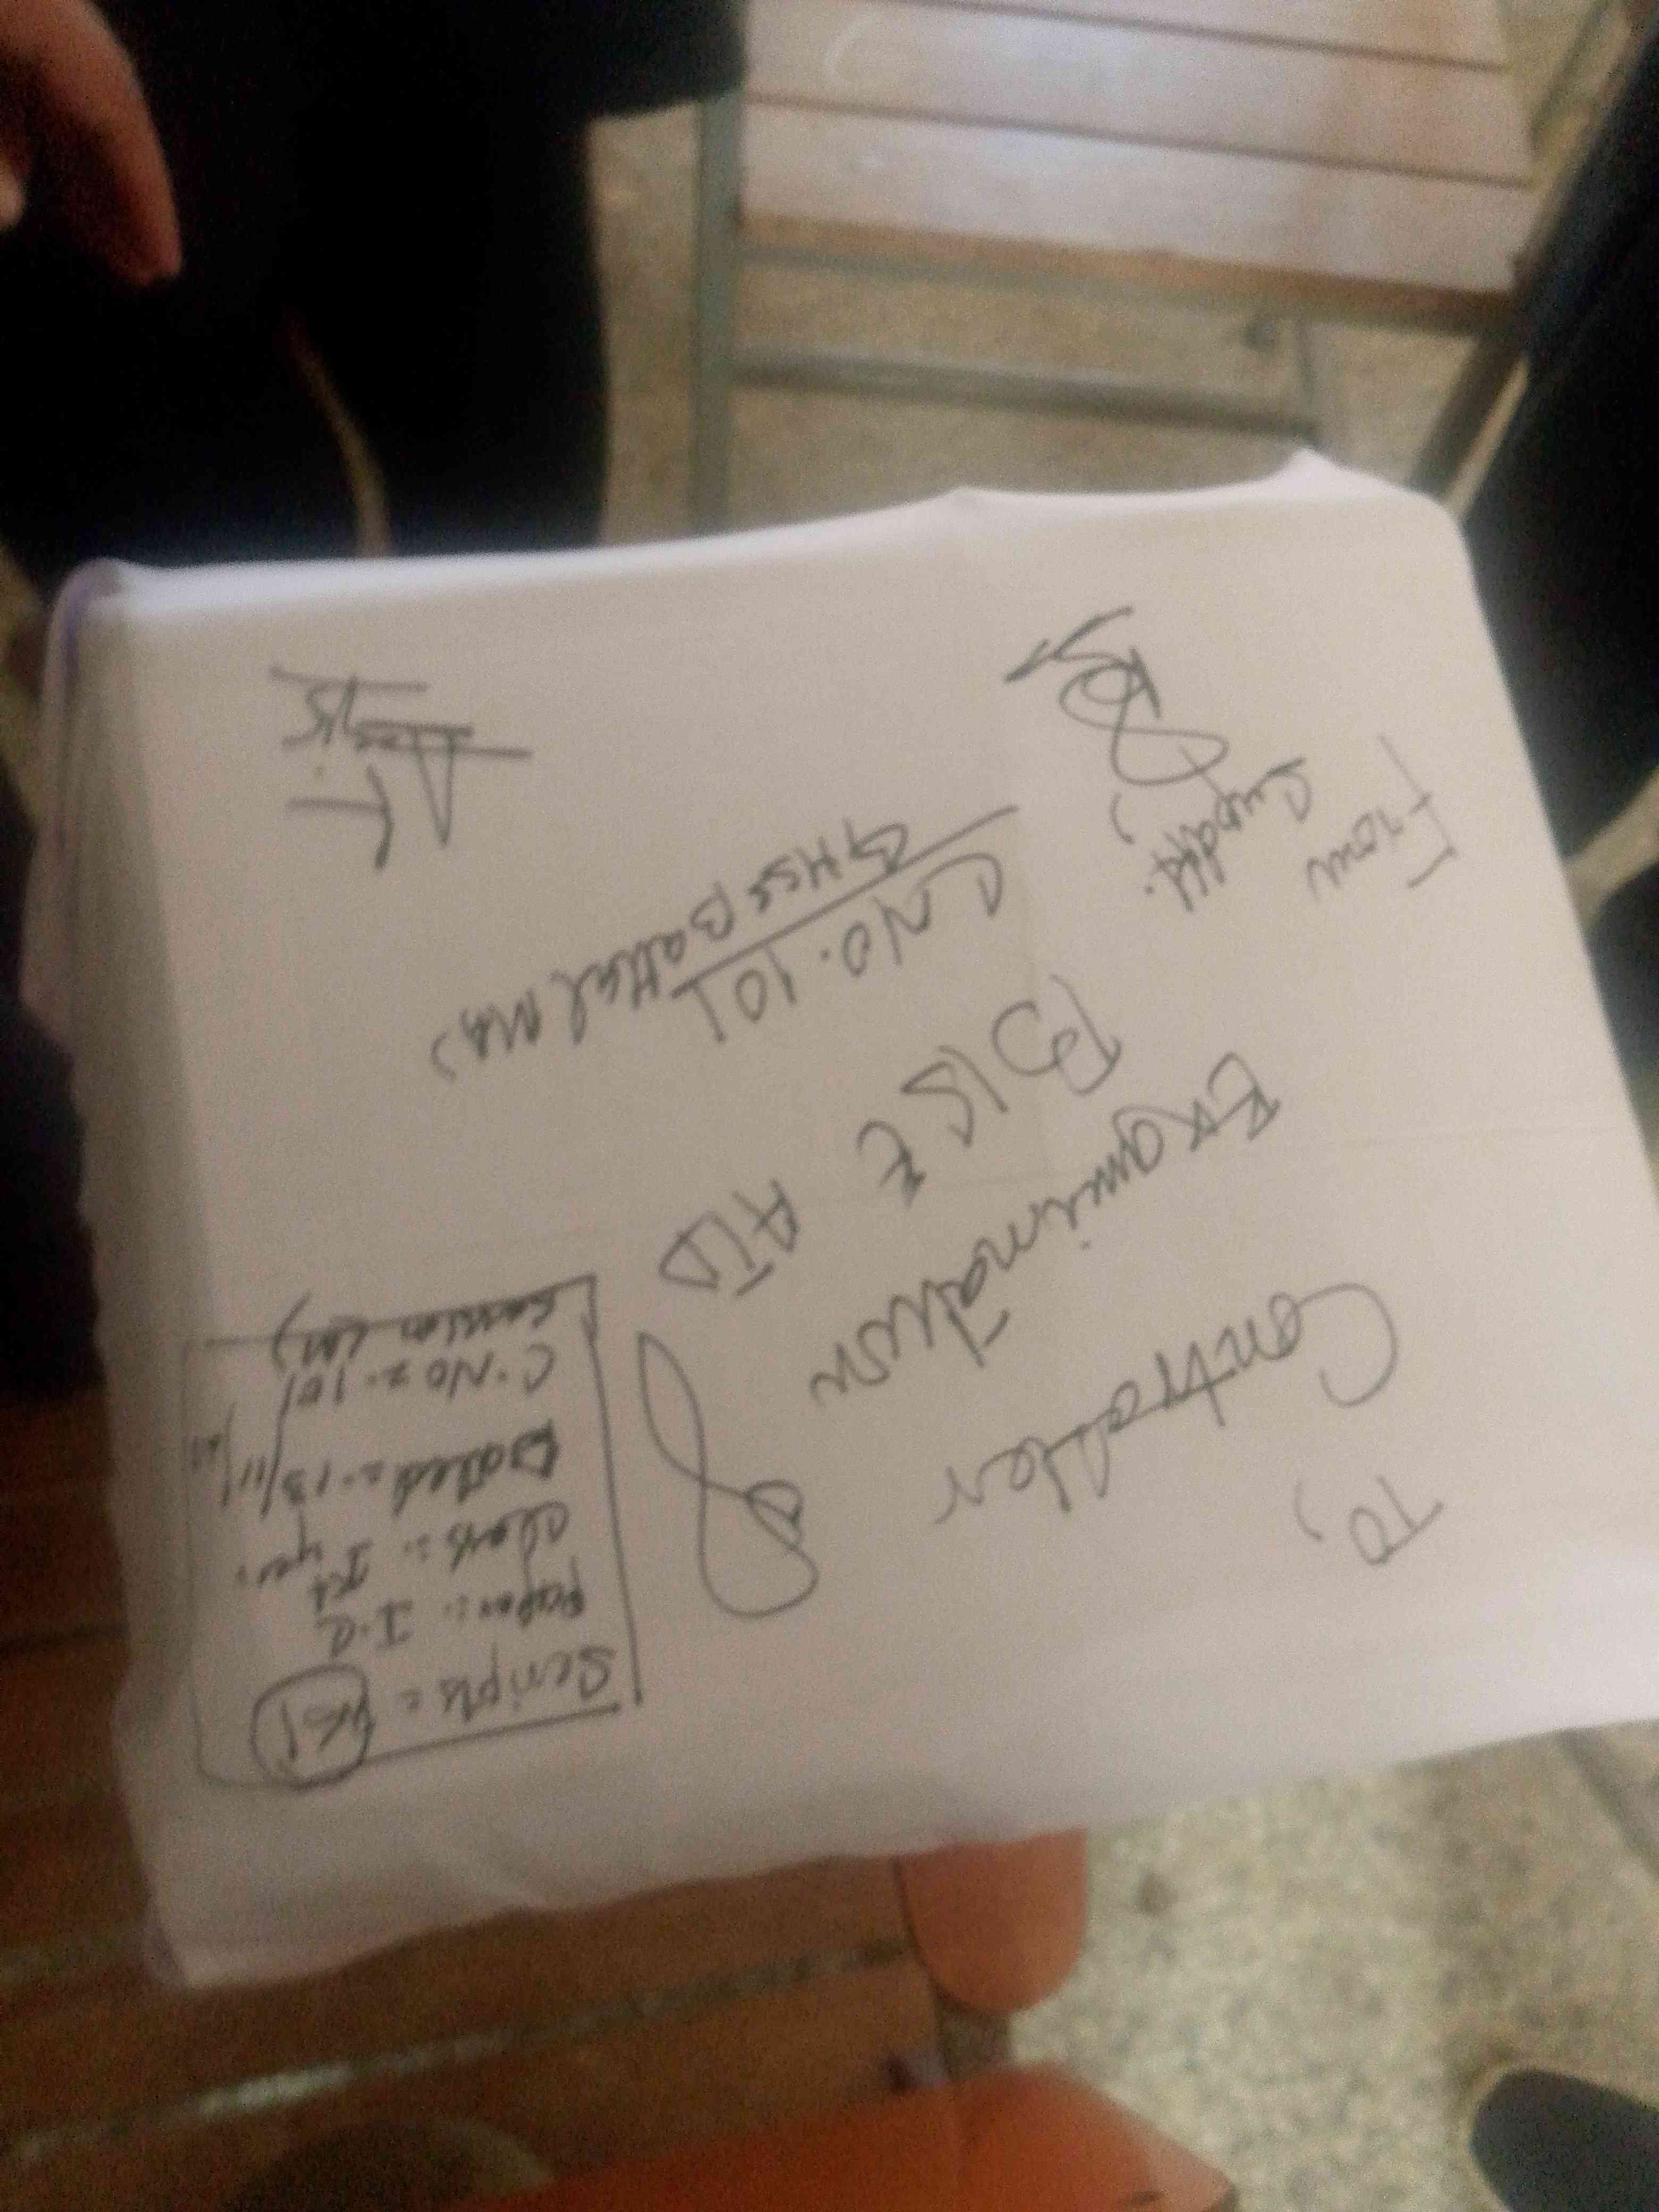 To,
Controller
Examination
BISE ATD
From
Supdtt.
C.No. 101
GHSS Battal (MA)
Scripts =
Paper = I.C
Class = Ist year
Dated = 13/11/
C.No = 101
Session (M)